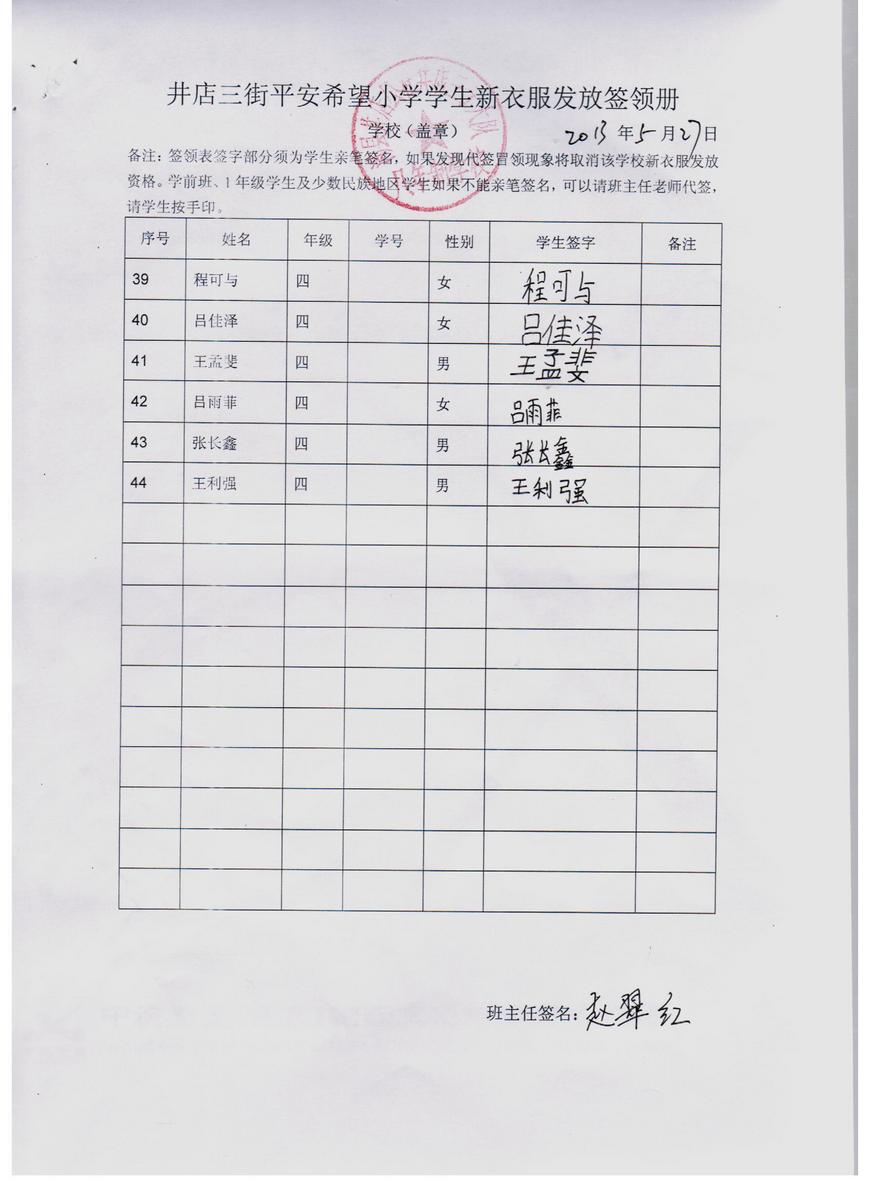 井店三街平安希望小学学生新衣服发放签领册
学校（盖章） 2013 年 5 月 27 日
备注：签领表签字部分须为学生亲笔签名，如果发现代签冒领现象将取消该学校新衣服发放
资格。学前班、1 年级学生及少数民族地区学生如果不能亲笔签名，可以请班主任老师代签，
请学生按手印。
序号 姓名 年级 学号 性别 学生签字 备注
39 程可与 四 女 程可与
40 吕佳泽 四 女 吕佳泽
41 王孟斐 四 男 王孟斐
42 吕雨菲 四 女 吕雨菲
43 张长鑫 四 男 张长鑫
44 王利强 四 男 王利强
班主任签名：赵翠红